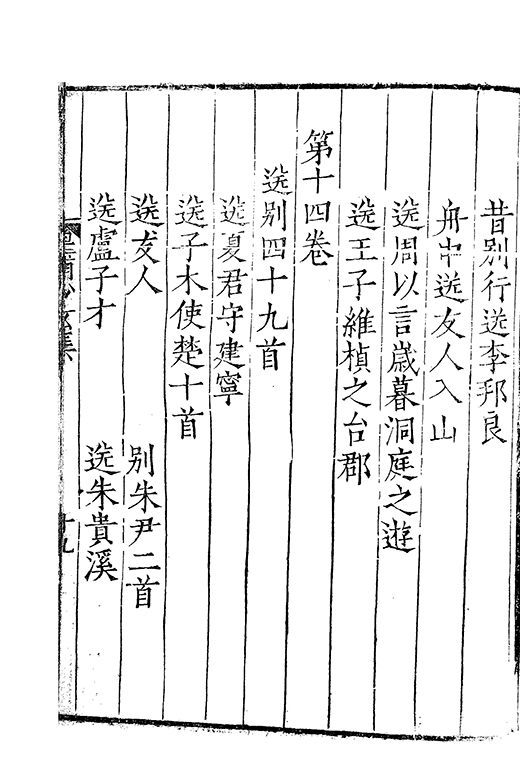 昔別行送李邦良
舟中送友人入山
送周以言歲暮洞庭之遊
送王子維楨之台郡
第十四卷
送別四十九首
送夏君守建寧
送子木使楚十首
送友人 別朱尹二首
送盧子才 送朱貴溪